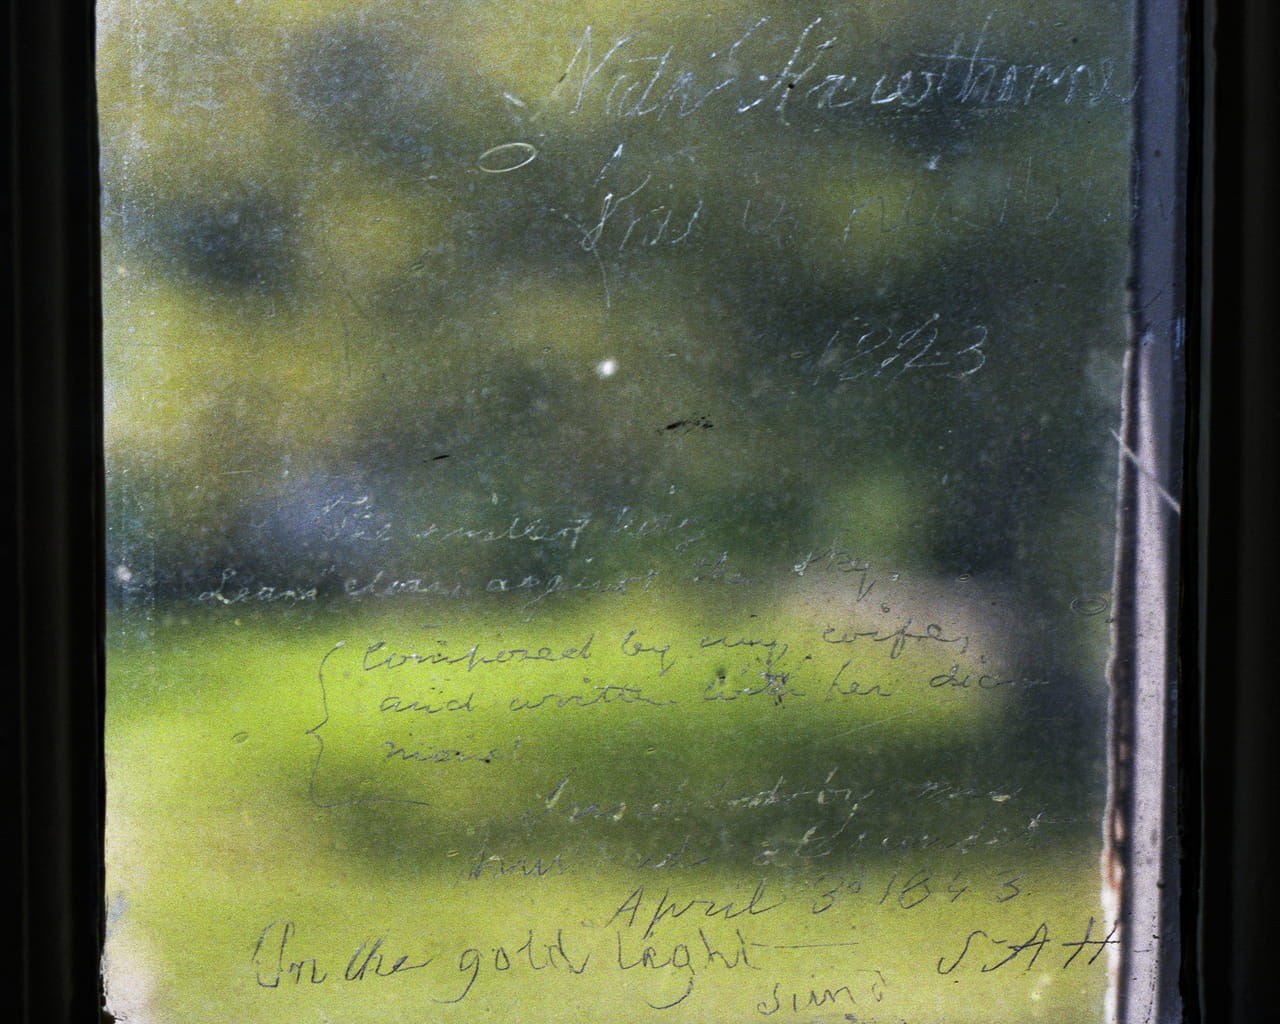 Nath Hawthorne
This is his study
1843
The smallest twig
Leans clear against the sky.
Composed by my wife,
and written with her dia-
mond
Inscribed by my
husband at sunset
April 3d 1843.
On the gold light — S A H